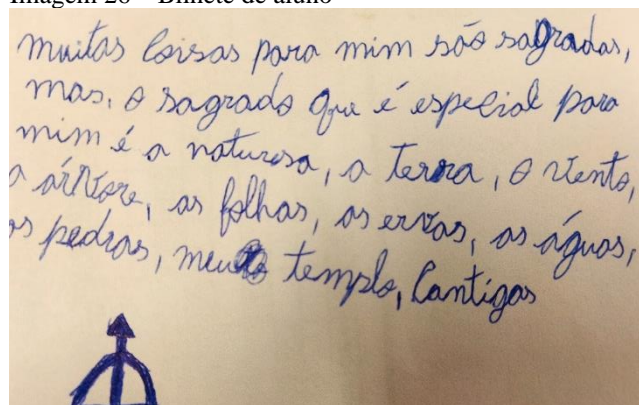 Imagem 26 – Bilhete de aluno
muitas coisas para mim são sagradas,
mas, o sagrado que é especial para
mim é a naturesa, a terra, o vento,
a árvore, as folhas, as ervas, as águas,
as pedras, meu templo, cantigas